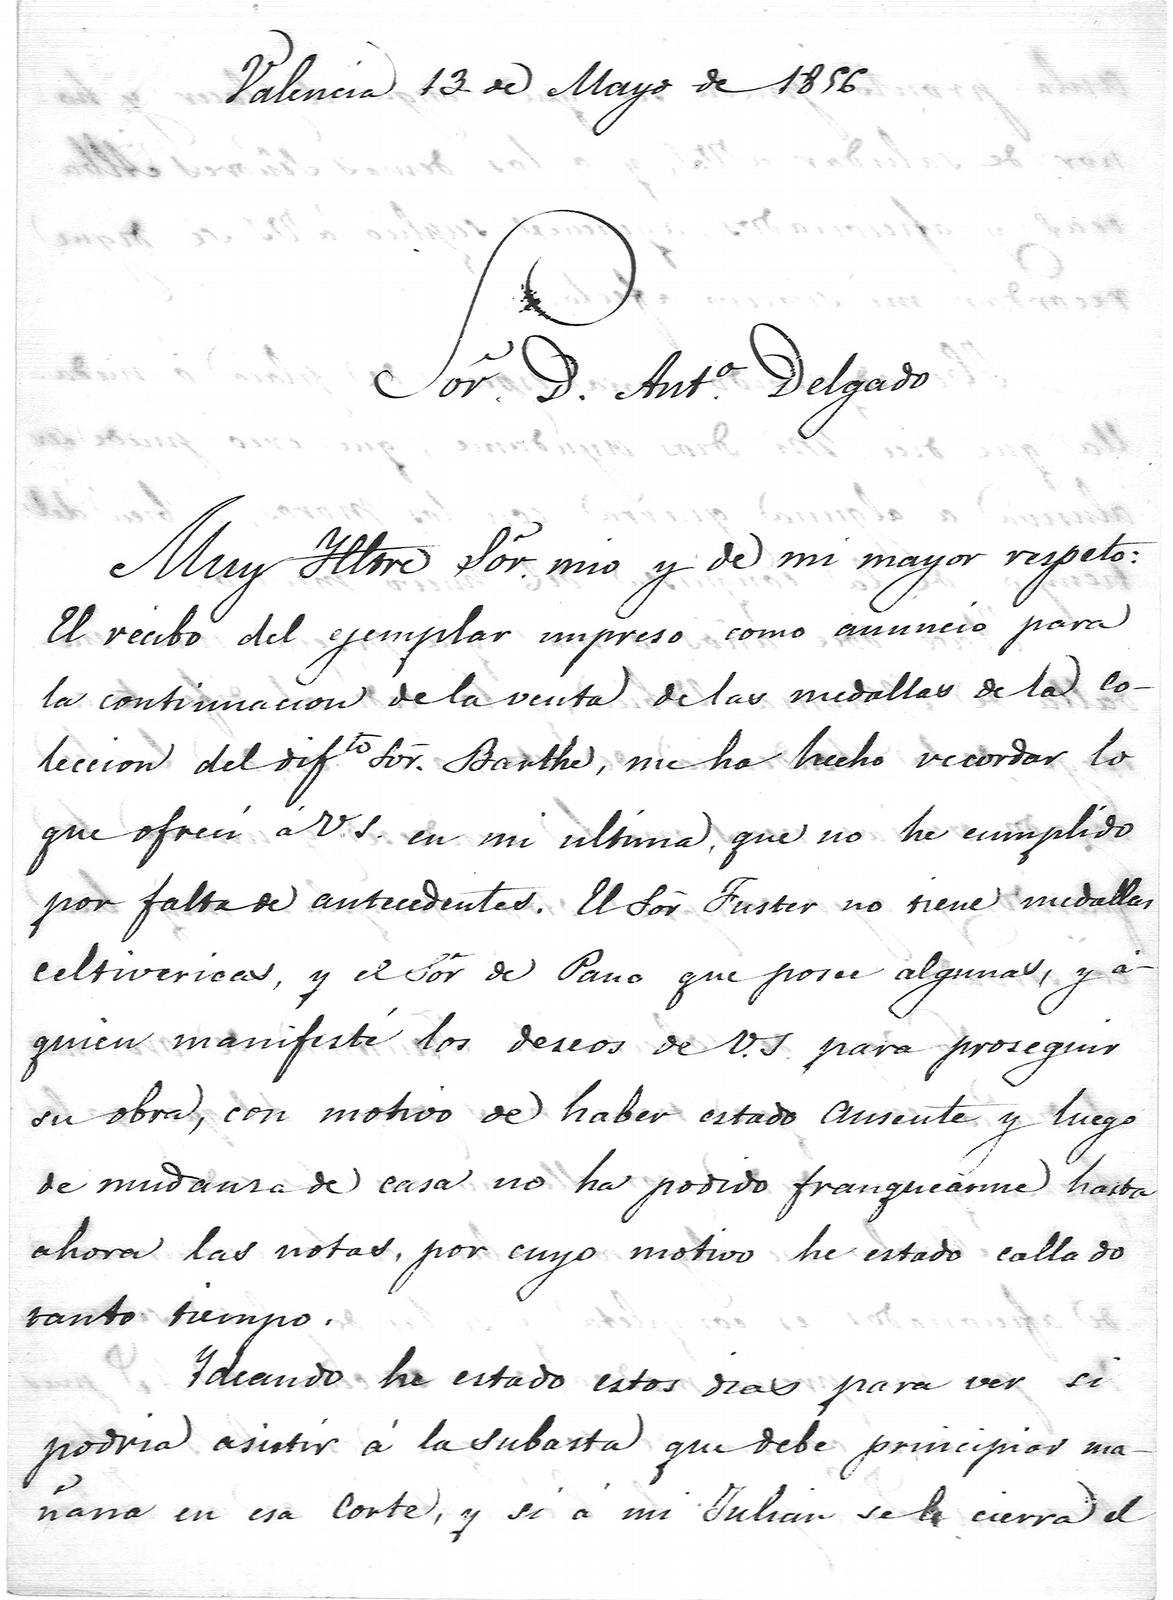 Valencia 13 de Mayo de 1856
Sōr. D. Antº. Delgado
Muy Yltre Sōr. mio y de mi mayor respeto:
El recibo del ejemplar impreso como anuncio para
la continuacion de la venta de las medallas de la co-
leccion del difto Sōr. Barthe, me ha hecho recordar lo
que ofreci á V.S. en mi ultima, que no he cumplido
por falta de antecedentes. El Sōr Fuster no tiene medallas
celtivericas, y el Sōr de Pano que posee algunas, y á
quien manifesté los deseos de V.S. para proseguir
su obra, con motivo de haber estado ausente y luego
de mudanza de casa no ha podido franquearme hasta
ahora las notas, por cuyo motivo he estado callado
tanto tiempo.
Ydeando he estado estos dias para ver si
podria asistir á la subasta que debe principiar ma-
ñana en esa Corte, y si á mi Julian se le cierra el